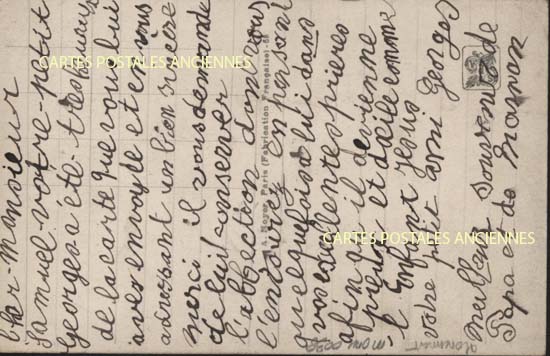 cher Monsieur
Samuel votre petit
Georges a été très heureux
de la carte que vous lui
avez envoyée et en vous
adressant un bien sincère
merci il vous demande
de lui conserver
l'affection dont vous
l'entourez en pensant
quelquefois a lui dans
vos excellentes prieres
afin qu'il devienne
pieux et docile comme
l'Enfant Jesus
votre petit ami Georges
meilleur souvenir de
Papa et de Maman
A. Noyer, Paris (Fabrication Française)
CARTES POSTALES ANCIENNES
CARTES POSTALES ANCIENNES